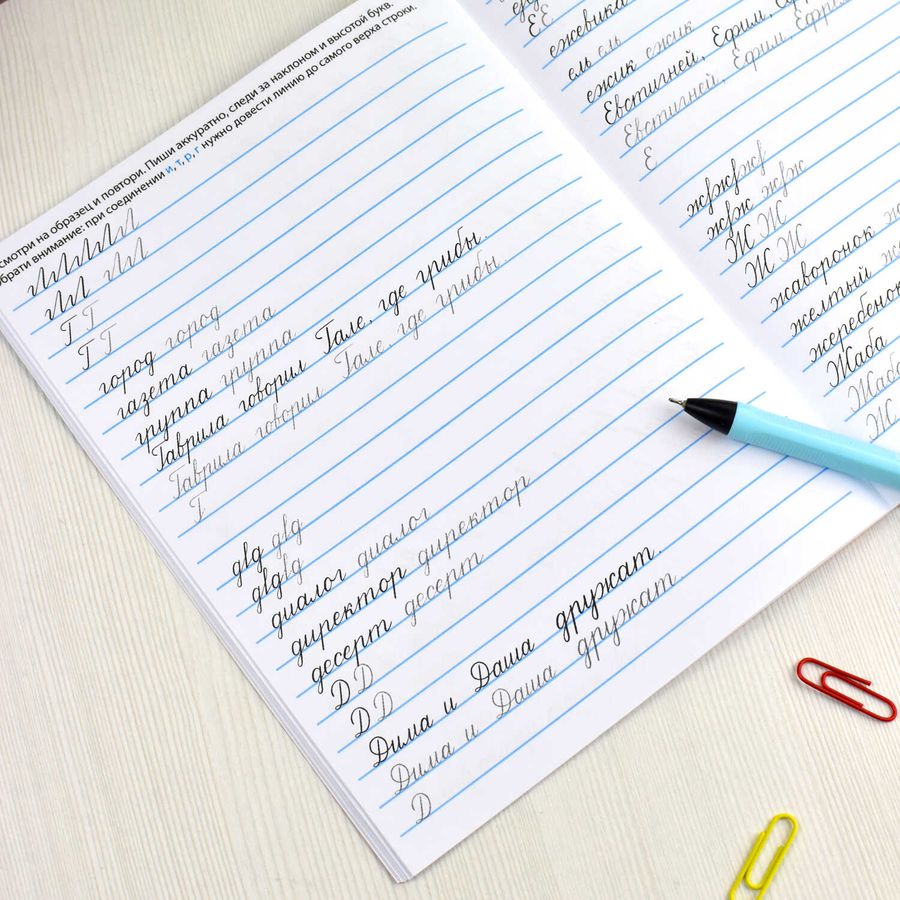 смотри на образец и повтори. Пиши аккуратно, следи за наклоном и высотой букв.
обрати внимание: при соединении и, т, р, г нужно довести линию до самого верха строки.
Г Г
Г Г
город город
газета газета
группа группа
Гаврила говорил Гале, где грибы.
Гаврила говорил Гале, где грибы.
Г
диалог диалог
директор директор
десерт десерт
Д Д
Д Д
Дима и Даша дружат.
Дима и Даша дружат.
Д
Е Е
ежевика
ель ель
ежик ежик
Евстигней, Ефим, Ефр
Евстигней, Ефим, Ефрем
Е
Ж Ж
Ж Ж
жаворонок
желтый
жеребенок
Жаба
Жаба
Ж